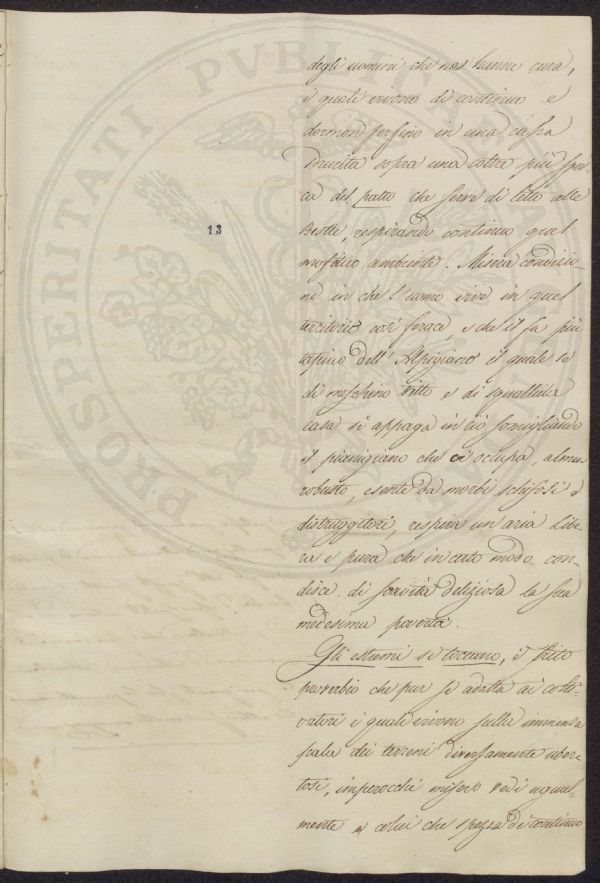 PROSPERITATI PVBLICAE
13
degli uomini che nos hanno cura,
i quali vivono di continuo e
dormon perfino in una cassa
sdrucita sopra una coltre più spor-
ca del patto che serve di letto alle
Bestie, respirando continuo quel
mofetico ambiente. Misera condizio-
ne in che l'uomo vive in quel
territorio così ferace e che il fa più
tapino dell'Alpigiano il quale se
di meschino vitto e di squallida
casa si appaga in ciò somigliando
il parmigiano che ci occupa, almen
robusto, esente da morbi schifosi e
distruggitori, respira un'aria libe-
ra e pura che in certo modo con-
disce di soavità deliziosa la sua
medesima povertà.
Gli estremi si toccano, è trito
proverbio che pur si adatta ai colti-
vatori i quali vivono sulla immensa
scala dei terreni diversamente uber-
tosi, imperocchè misero vedi ugual-
mente e colui che spezza di continuo